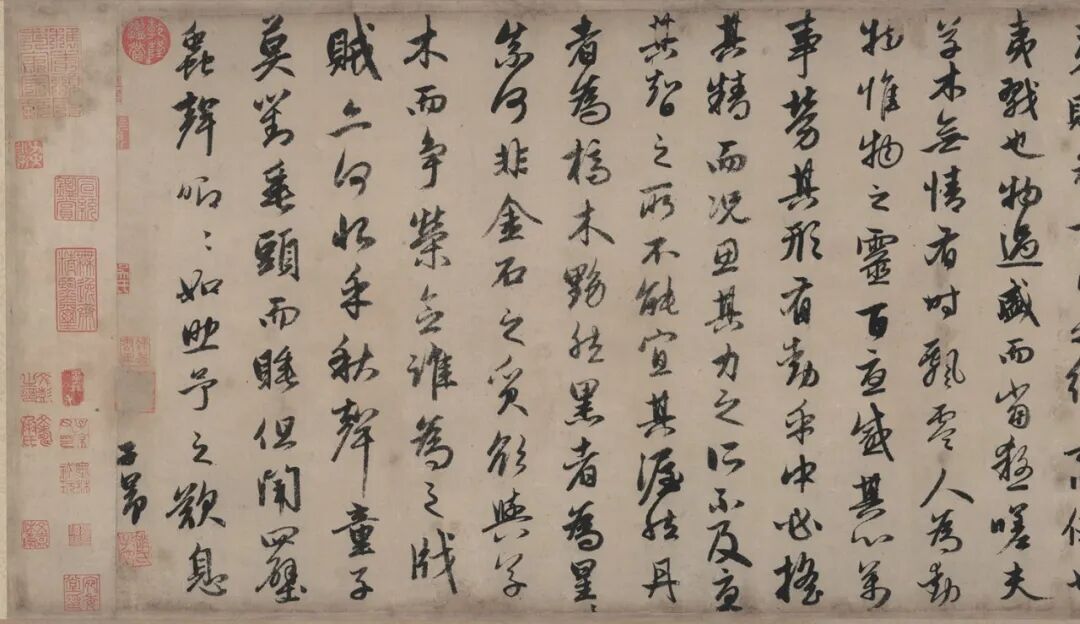 夷戮也物過盛而當殺嗟夫
草木無情有時飄零人為動
物惟物之靈百憂感其心萬
事勞其形有動乎中必搖
其精而況思其力之所不及憂
其智之所不能宜其渥然丹
者為槁木黟然黑者為星〻
奈何非金石之質欲與草
木而爭榮念誰為之戕
賊亦何恨乎秋聲童子
莫對垂頭而睡但聞四壁
蟲聲唧〻如助予之歎息
子昂
乾隆鑑賞